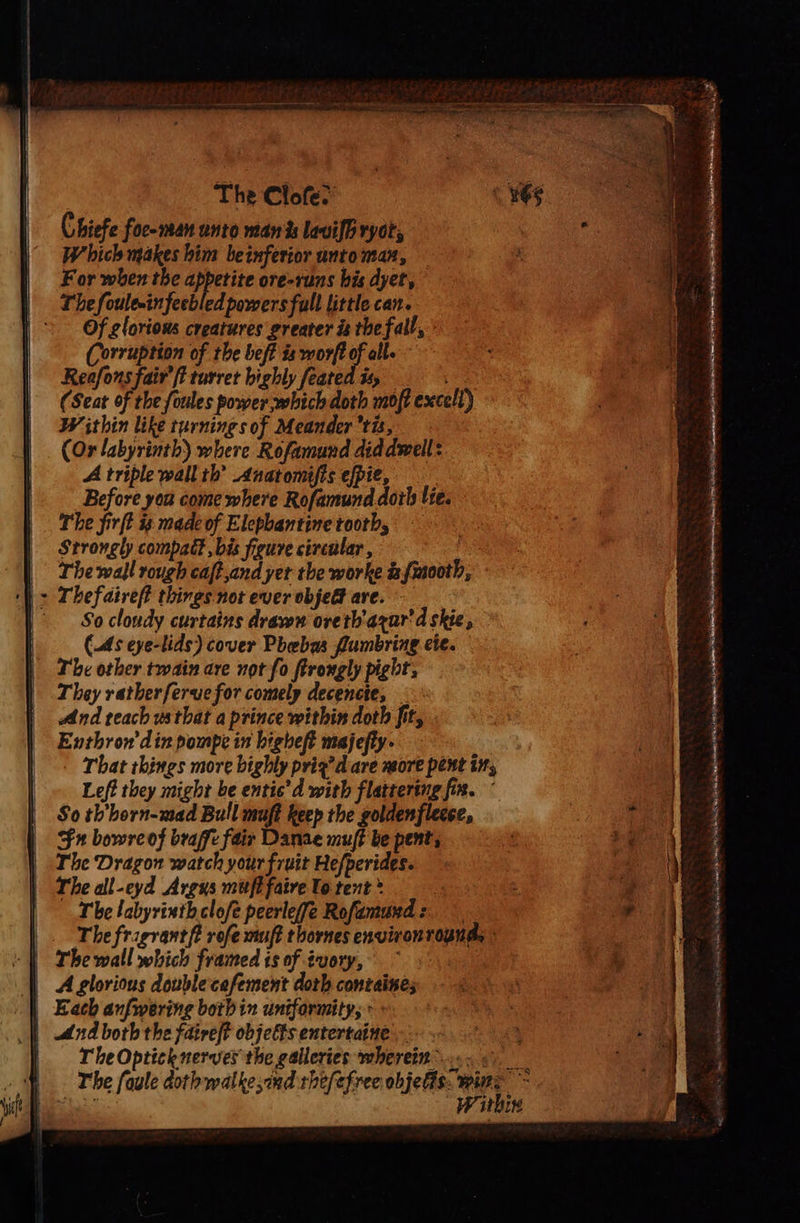 The Clofe. 165
Chiefe foe-man unto man is lavifh ryot,
Which makes him be inferior unto man,
For when the appetite ore-runs his dyet,
The foule-infeebled powers full little can.
Of glorious creatures greater is the fall,
Corruption of the beft is worft of all.
Reafons fair'ft turret highly feated is,
(Seat of the foules power, which doth moft excell)
Within like turnings of Meander 'tis,
(Or labyrinth) where Rofamund did dwell:
A triple wall th' Anatomifts efpie,
Before you come where Rofamund doth lie.
The firft is made of Elephantine tooth,
Strongly compact, his figure circular,
The wall rough caft, and yet the worke is fmooth,
The faireft things not ever object are.
So cloudy curtains drawn ore th'azur'd skie,
(As eye-lids) cover Phœbus flumbring eie.
The other twain are not fo ftrongly pight,
They rather ferve for comely decencie,
And teach us that a prince within doth fit,
Enthron'd in pompe in higheft majefty.
That things more highly priz'd are more pent in,
Left they might be entic'd with flattering fin.
So th'horn-mad Bull muft keep the golden fleece,
In bowre of braffe fair Danae muft be pent,
The Dragon watch your fruit Hefperides.
The all-eyd Argus muft faire Io tent:
The labyrinth clofe peerleffe Rofamund:
The fragrantft rofe muft thornes environ round,
The wall which framed is of ivory,
A glorious double cafement doth containe,
Each anfwering both in uniformity,
And both the faireft objects entertaine
The Optick nerves the galleries wherein
The foule doth walke, and thefe free objects win:
Within